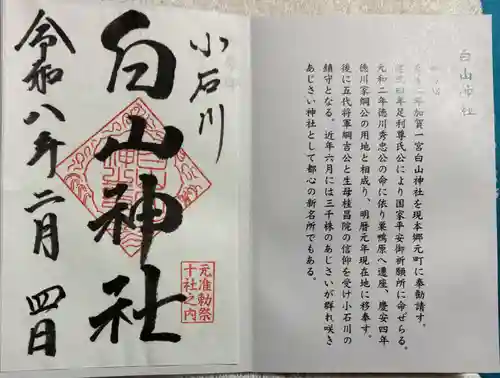 小石川
白山神社
元准勅祭
十社之内
令和八年二月四日
白山神社
年加賀一宮白山神社を現本郷元町に奉勧請す。
四年足利尊氏公により国家平安御祈願所に命ぜらる。
元和二年徳川秀忠公の命に依り巣鴨原へ遷座、慶安四年
徳川家綱公の用地と相成り、明暦元年現在地に移奉す。
後に五代将軍綱吉公と生母桂昌院の信仰を受け小石川の
鎮守となる。近年六月には三千株のあじさいが群れ咲き
あじさい神社として都心の新名所でもある。